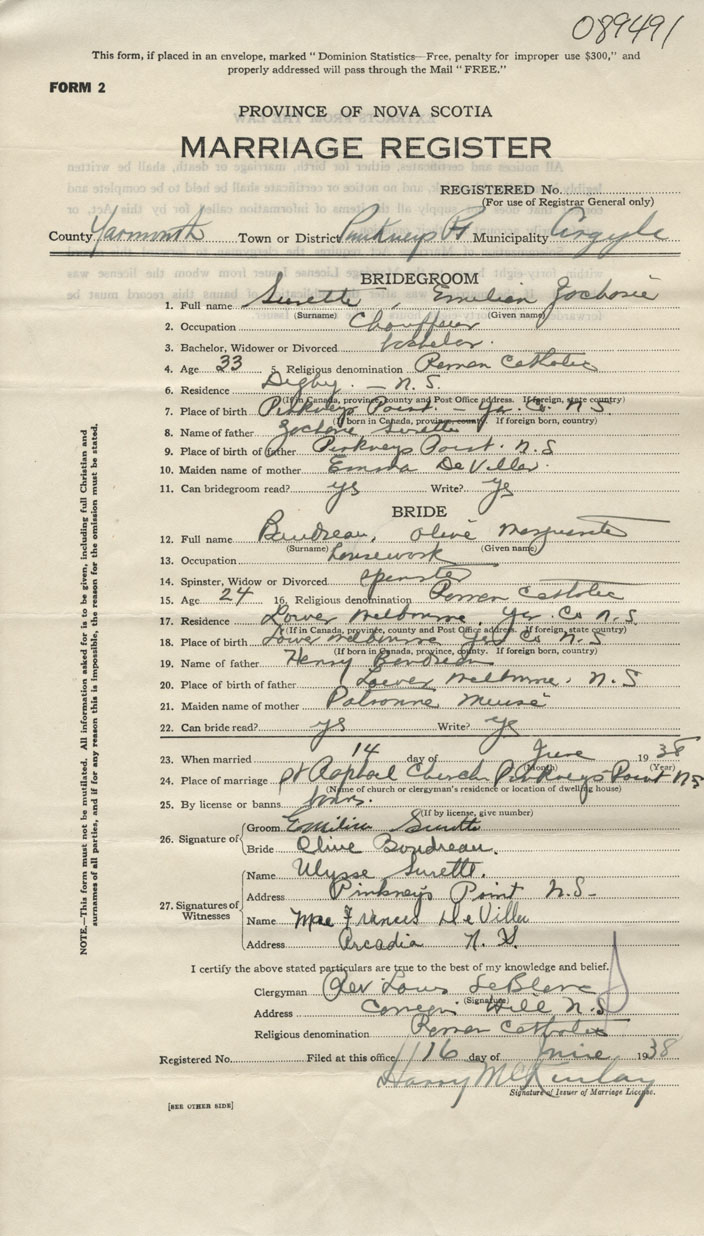 089491
This form, if placed in an envelope, marked "Dominion Statistics—Free, penalty for improper use $300," and
properly addressed will pass through the Mail "FREE."
FORM 2
PROVINCE OF NOVA SCOTIA
MARRIAGE REGISTER
REGISTERED No.
(For use of Registrar General only)
County Yarmouth Town or District Pinkneys Pt Municipality Argyle
BRIDEGROOM
1. Full name Surette, Emilien Zacharie
(Surname) (Given name)
2. Occupation Chauffeur
3. Bachelor, Widower or Divorced bachelor.
4. Age 33 5. Religious denomination Roman Catholic
6. Residence Digby. — N.S.
(If in Canada, province, county and Post Office address. If foreign, state country)
7. Place of birth Pinkneys Point. — Yar. Co. N.S.
(If born in Canada, province, county. If foreign born, country)
8. Name of father Zacharie Surette
9. Place of birth of father Pinkneys Point. N.S
10. Maiden name of mother Emma DeViller.
11. Can bridegroom read? yes Write? yes
BRIDE
12. Full name Boudreau, Olive Marguerite
(Surname) (Given name)
13. Occupation housework
14. Spinster, Widow or Divorced spinster
15. Age 24 16. Religious denomination Roman Catholic
17. Residence Lower Melbourne, Yar. Co N.S.
(If in Canada, province, county and Post Office address. If foreign, state country)
18. Place of birth Lower Melbourne Yar Co N.S.
(If born in Canada, province, county. If foreign born, country)
19. Name of father Henry Boudreau
20. Place of birth of father Lower Melbourne. N.S
21. Maiden name of mother Meuse
22. Can bride read? yes Write? yes
23. When married 14 day of June 1938
(Month) (Year)
24. Place of marriage St Raphael Church Pinkneys Point NS
(Name of church or clergyman's residence or location of dwelling house)
25. By license or banns banns.
(If by license, give number)
26. Signature of
Groom Emilien Surette
Bride Olive Boudreau.
27. Signatures of Witnesses
Name Ulysse Surette.
Address Pinkney's Point N.S—
Name Mae Frances DeViller
Address Arcadia N.S.
I certify the above stated particulars are true to the best of my knowledge and belief.
Clergyman Rev Louis LeBlanc
(Signature)
Address Hill N.S
Religious denomination Roman Catholic
Registered No. Filed at this office 16 day of June 1938
Harry McKinlay
Signature of Issuer of Marriage License.
[SEE OTHER SIDE]
NOTE.—This form must not be mutilated. All information asked for is to be given, including full Christian and
surnames of all parties, and if for any reason this is impossible, the reason for the omission must be stated.